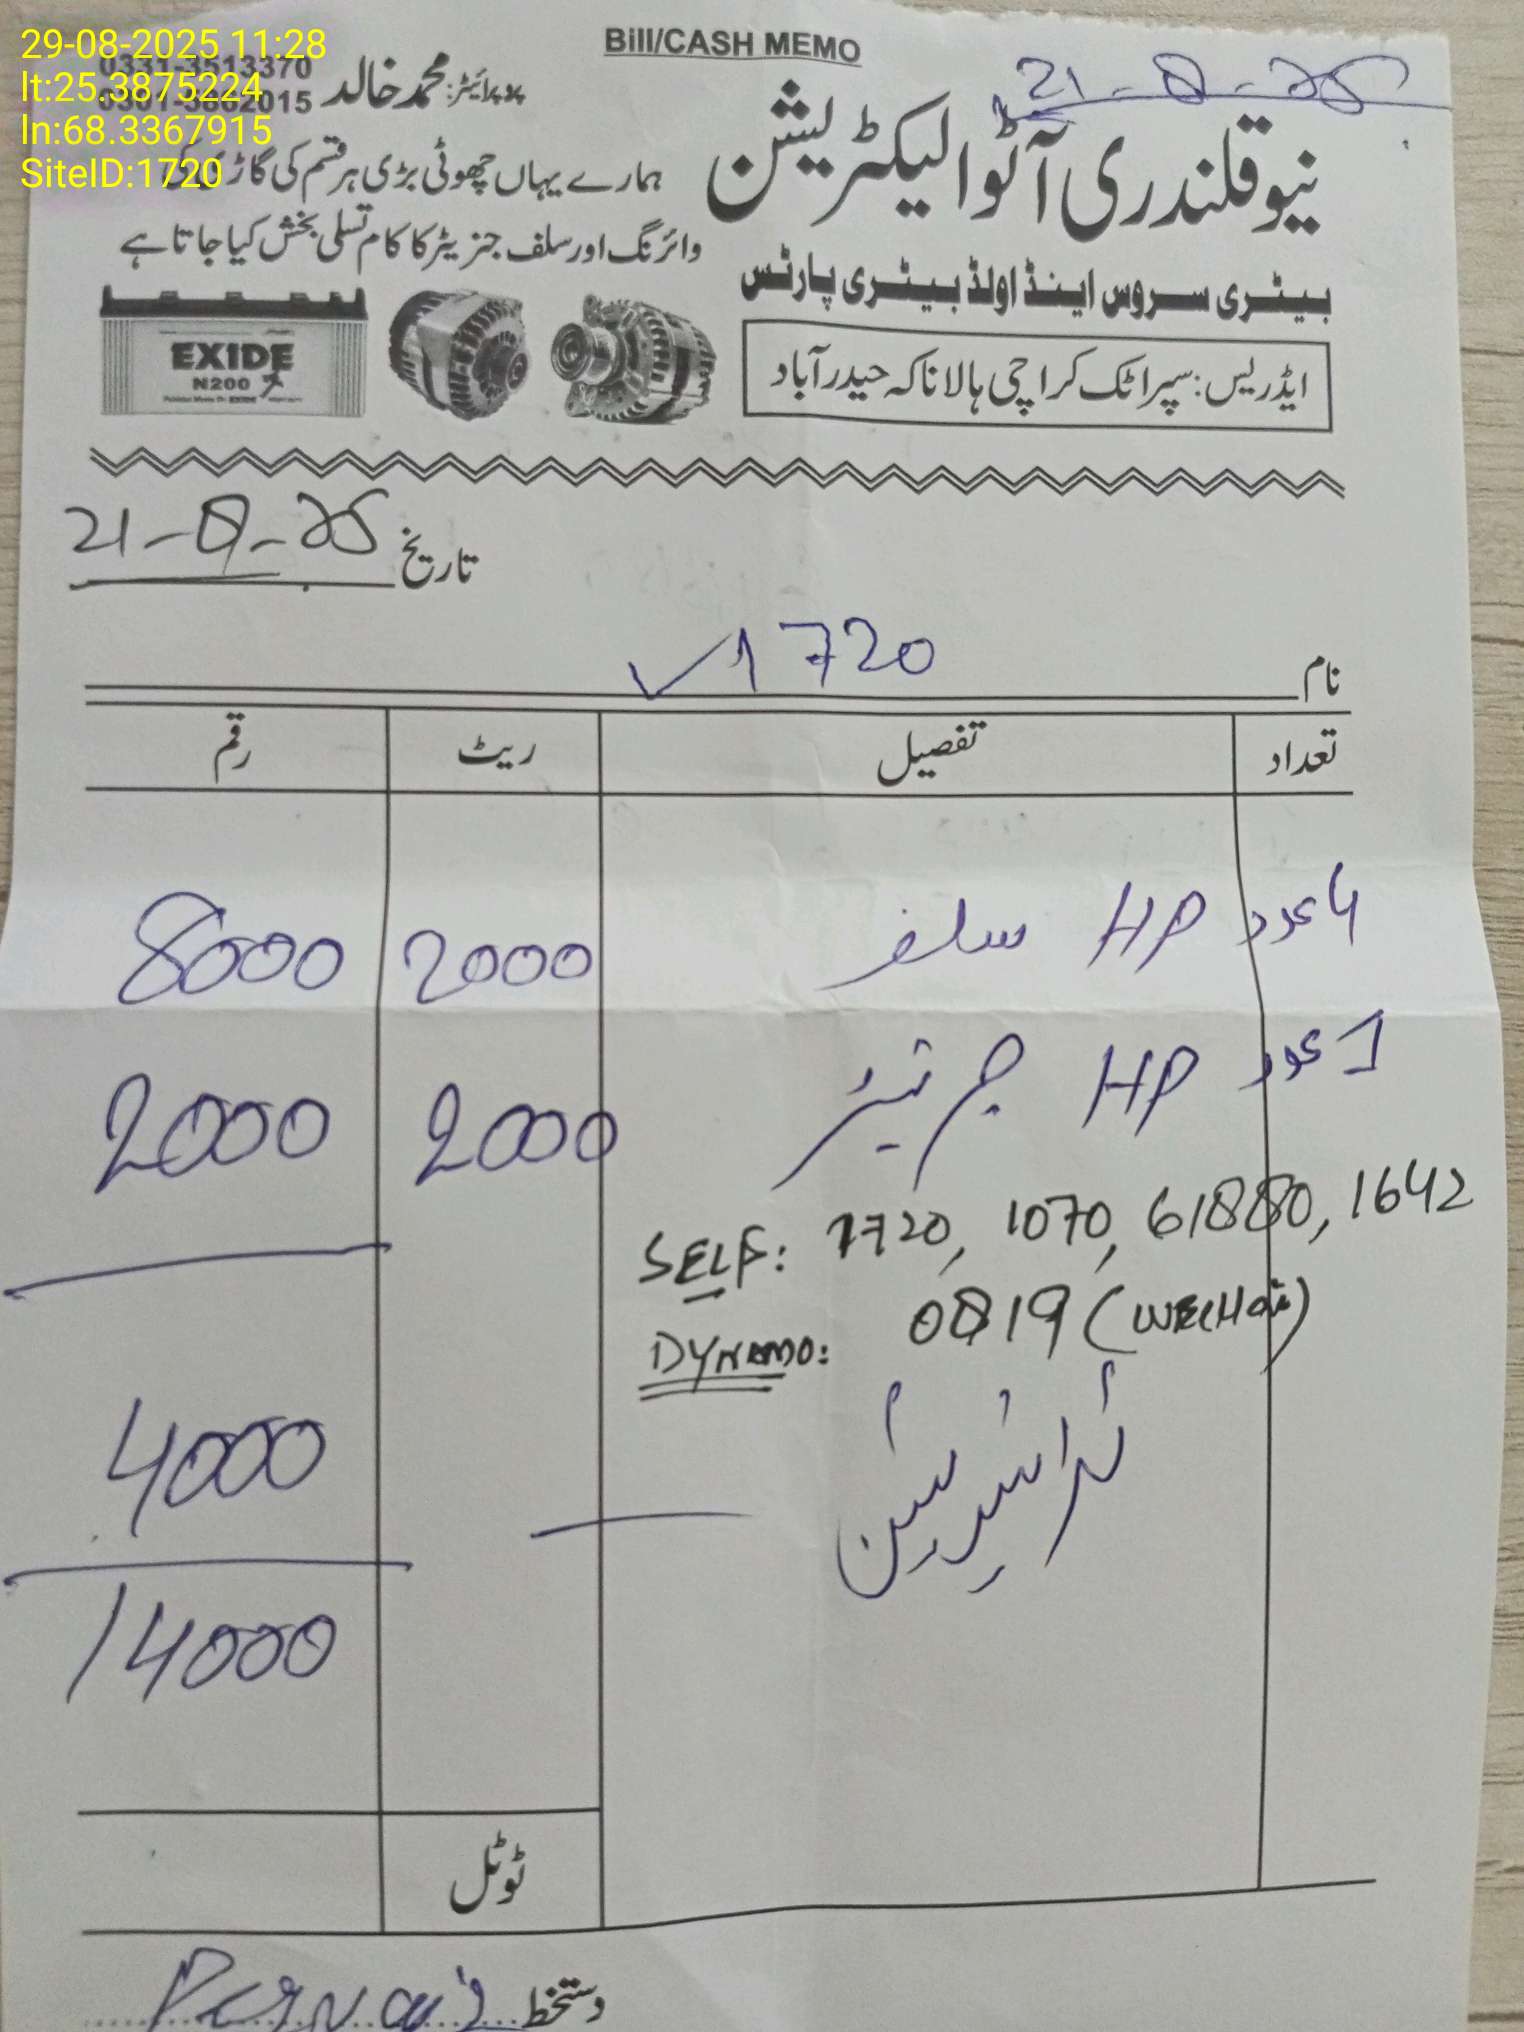 29-08-2025 11:28
lt:25.3875224
ln:68.3367915
SiteID:1720
Bill/CASH MEMO
21-8-25
0331-3513370
پروپرائیٹر: محمد خالد
نیو قلندری آٹو الیکٹریشن
ہمارے یہاں چھوٹی بڑی ہر قسم کی گاڑی کی
وائرنگ اور سلف جنریٹر کا کام تسلی بخش کیا جاتا ہے
بیٹری سروس اینڈ اولڈ بیٹری پارٹس
ایڈریس: سپر اٹک کراچی ہالا ناکہ حیدرآباد
EXIDE
N200
تاریخ 21-8-25
نام 1720
تعداد تفصیل ریٹ رقم
4 عدد HP سلف 2000 8000
1 عدد HP جرنیٹر 2000 2000
SELF: 1720, 1070, 61880, 1642
DYNAMO: 0819
4000
14000
ٹوٹل
دستخط